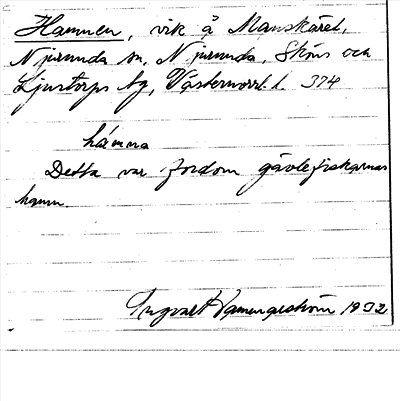 Hamnen, vik å Manskäret,
Njurunda sn, Njurunda, Sköns och
Ljustorps tg, Västernorrl. l. 374
hámna
Detta var fordom gävlefiskarnas
hamn.
Ingvart 1932